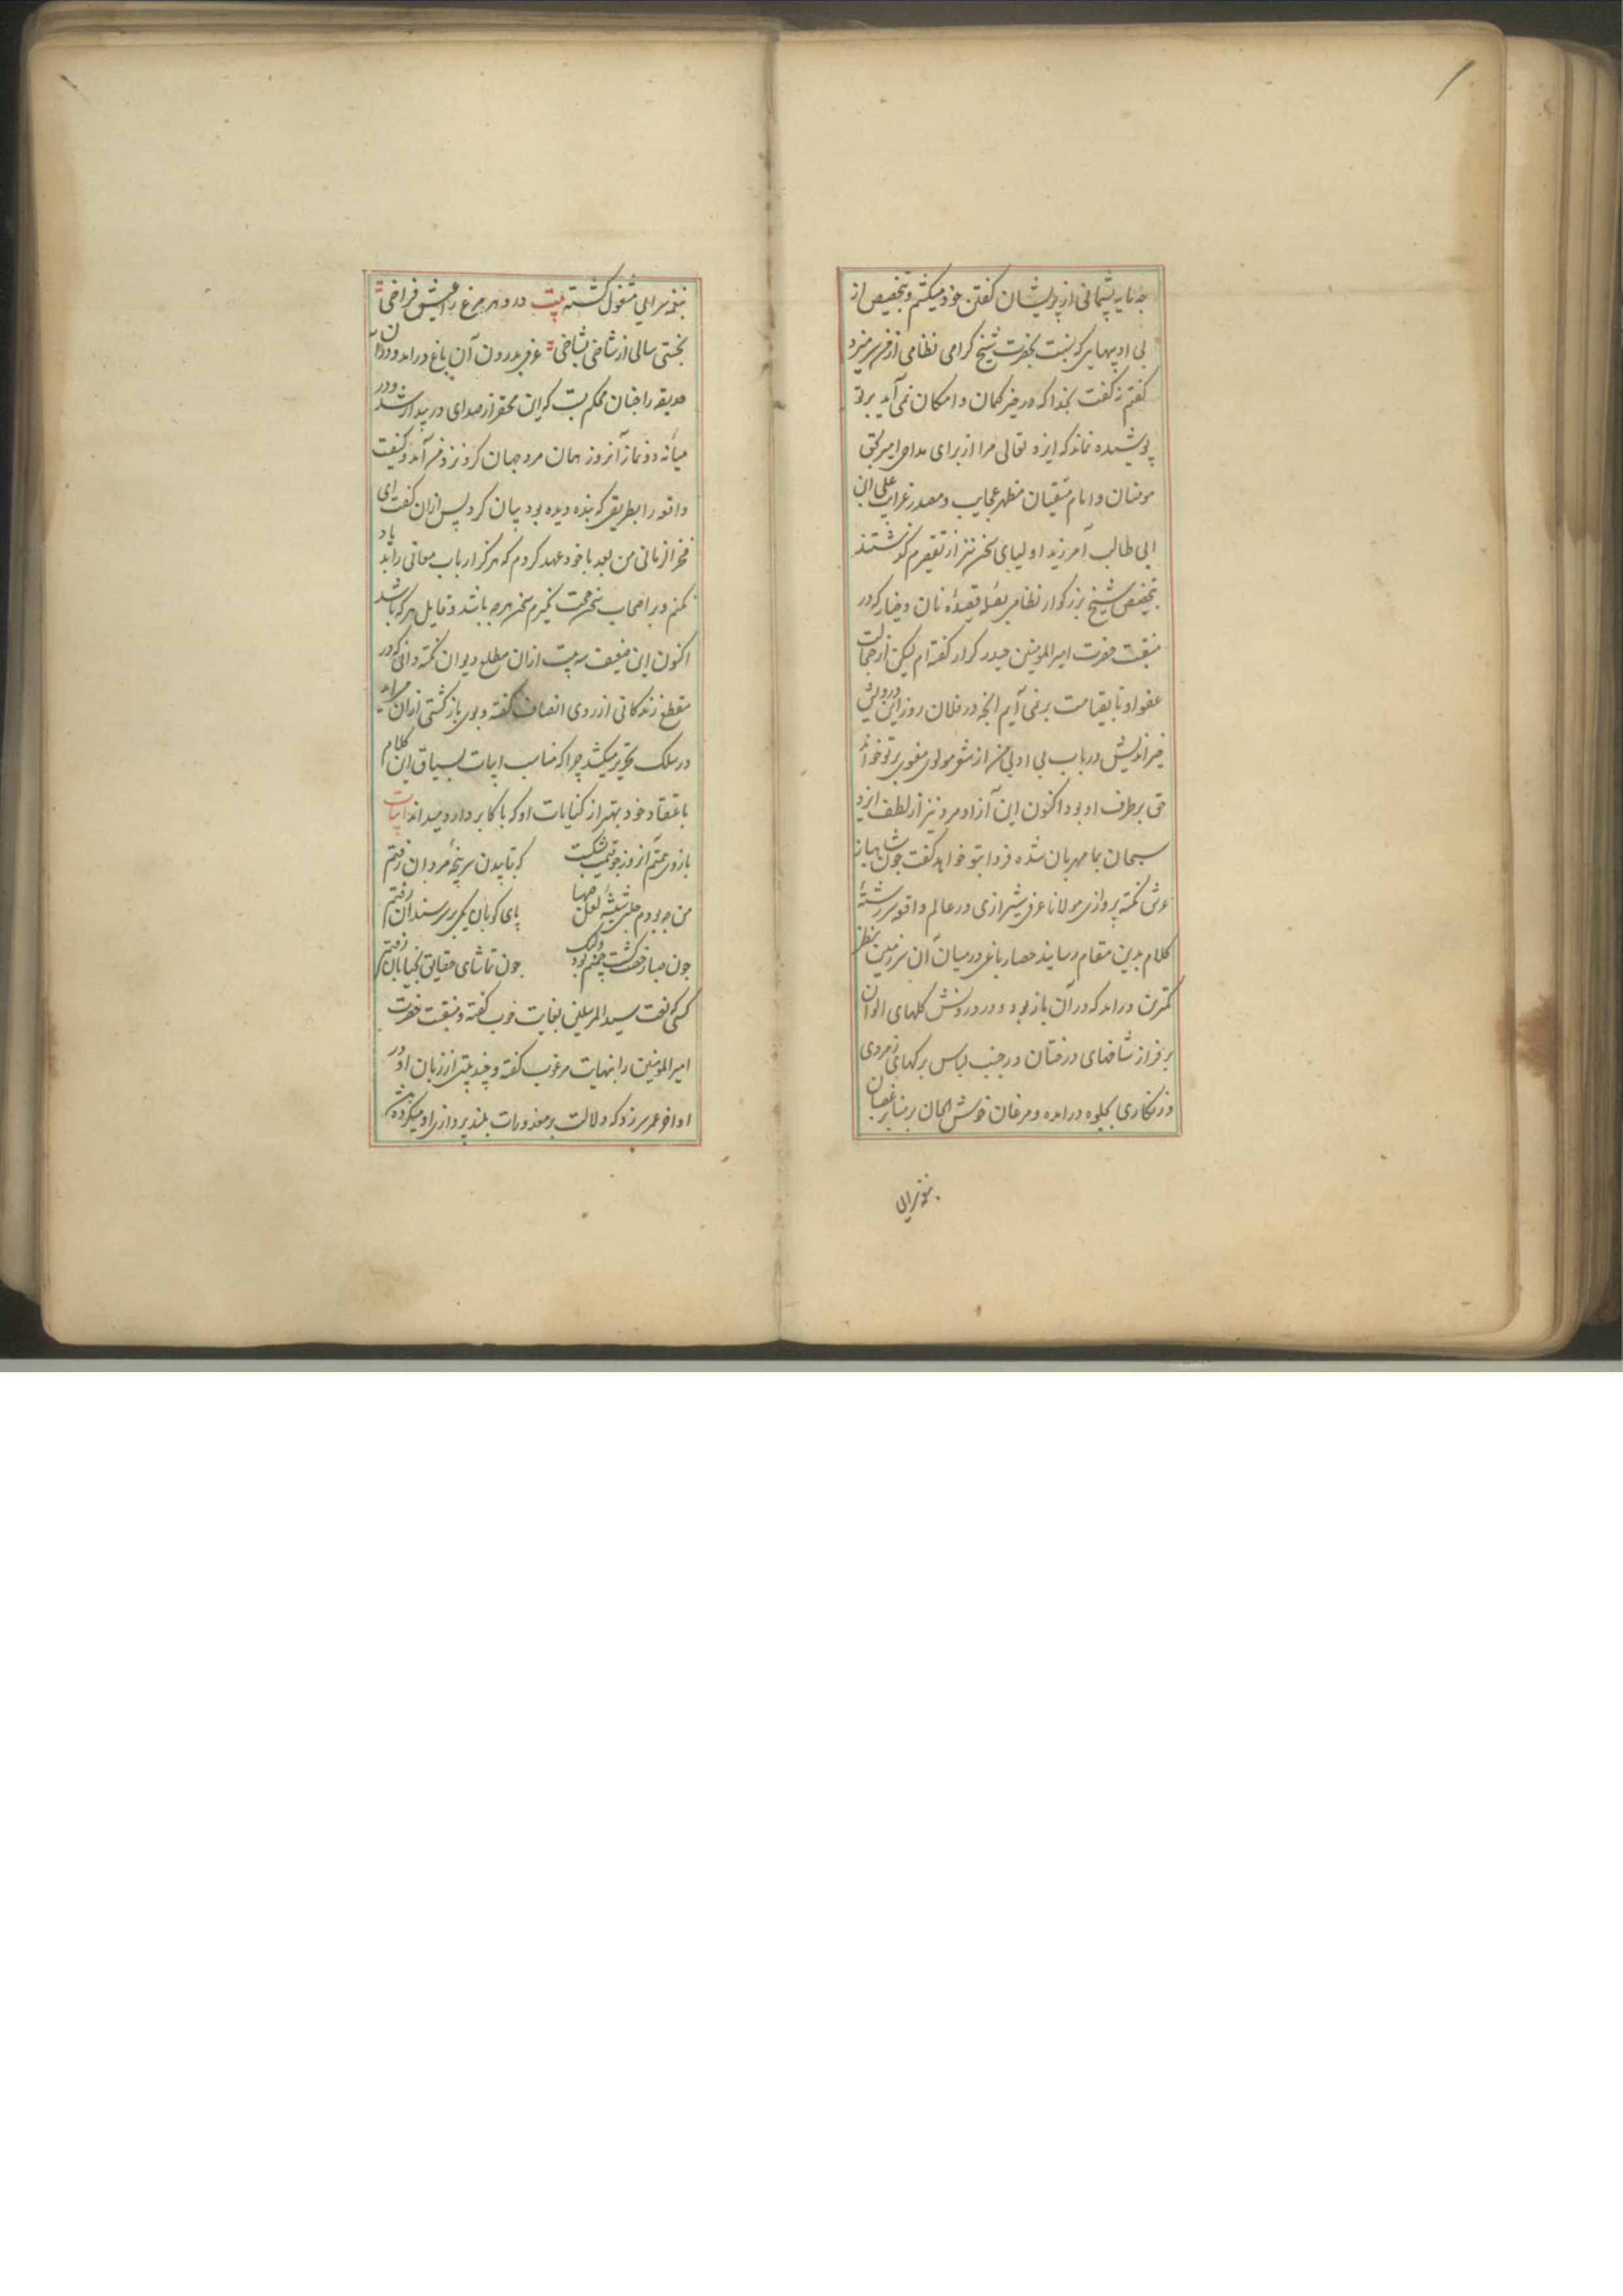 چه مایه پشیمانی از پریشان گفتن خود میکشم و بتخصیص از
بی ادبیهایی که نسبت بحضرت شیخ گرامی نظامی از من سر میزد
گفتم نه گفت بخدا که در حیز گمان و امکان نمی آید بر تو
پوشیده نماند که ایزد تعالی مرا از برای مداحی امیر کل
مومنان و امام متقیان مظهر عجایب و مصدر غرایب علی ابن
ابی طالب آمرزید اولیای سخن نیز از تقصیرم گذشتند
بتخصیص شیخ بزرگوار نظامی بصله قصیده نان و خیار که در
منقبت حضرت امیرالمومنین حیدر کرار گفته ام لیکن از خجالت
عفو او تا بقیامت بر نمی آیم انچه در فلان روز این درویش
خیراندیش در باب بی ادبی من از مولوی مغفوری بر تو خواند
حق بر طرف او بود اکنون این آزاد مرد نیز از لطف ایزد
سبحان بما مهربان شده فردا بتو خواهد گفت چون شاهباز
عرش نکته پردازی مولانا عرفی شیرازی در عالم واقعه سر رشتهٔ
کلام بدین مقام رسانید حصار باغی در میان آن سرزمین بنظر
کمترین درامد که در آن باز بود و در درونش گلهای الوان
بر فراز شاخهای درختان در جنب لباس برگهای زمردی
و زنگاری بجلوه درامده و مرغان خوش الحان بر منابر اغصان
بنغمه سرایی
بنغمه سرایی مشغول گشته بیت درو هر مرغ را عیش فراخی
بجستی سالی از شاخی بشاخی عرفی بدرون آن باغ درامد و در آن
حدیقه را چنان محکم بست که این محقر از صدای در بیدار شد و در
میانهٔ دو نماز آنروز همان مرد جهان گرد نزد من آمد و کیفیت
واقعه را بطریقی که بنده دیده بود بیان کرد پس ازان گفت ای
فخرالزمانی من بعد با خود عهد کردم که هرگز ارباب معانی را بد یاد
نکنم و بر اصحاب سخن حجت نگیرم سخن هر چه باشد و قایل هر که باشد
اکنون این ضعیف سه بیت ازان مطلع دیوان نکته دانی که در
مقطع زندگانی از روی انصاف گفته و بوی بازگشتی ازان می آید
در سلک تحریر میکشد چرا که مناسب ابیات بسیاق این کلام
باعتقاد خود بهتر از کنایات او که با اکابر دارد میداند ابیات
بازوی همتم آنروز شکست که بتابیدن سرپنجهٔ مردان رفتم
من چه بودم شیشهٔ لعل صهبا پای کوبان بسر سندان رفتم
چون صبا چشمم بود چون تماشای حقایق بخیابان رفتم
کسی که نعت سید المرسلین بغایت خوب گفته و منقبت حضرت
امیرالمومنین را بنهایت مرغوب گفته و چند بیتی از زبان او در
اواخر عمر سر زد که دلالت بر معذورات بلند پروازی او میکرده باشد